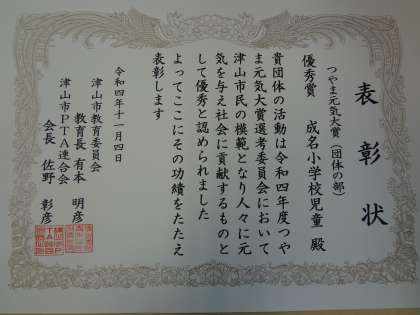 表彰状
つやま元気大賞（団体の部）
優秀賞　成名小学校児童 殿
貴団体の活動は令和四年度つや
ま元気大賞選考委員会において
津山市民の模範となり人々に元
気を与え社会に貢献するものと
して優秀と認められました
よってここにその功績をたたえ
表彰します
令和四年十一月四日
津山市教育委員会
教育長 有本 明彦
津山市ＰＴＡ連合会
会長 佐野 彰彦